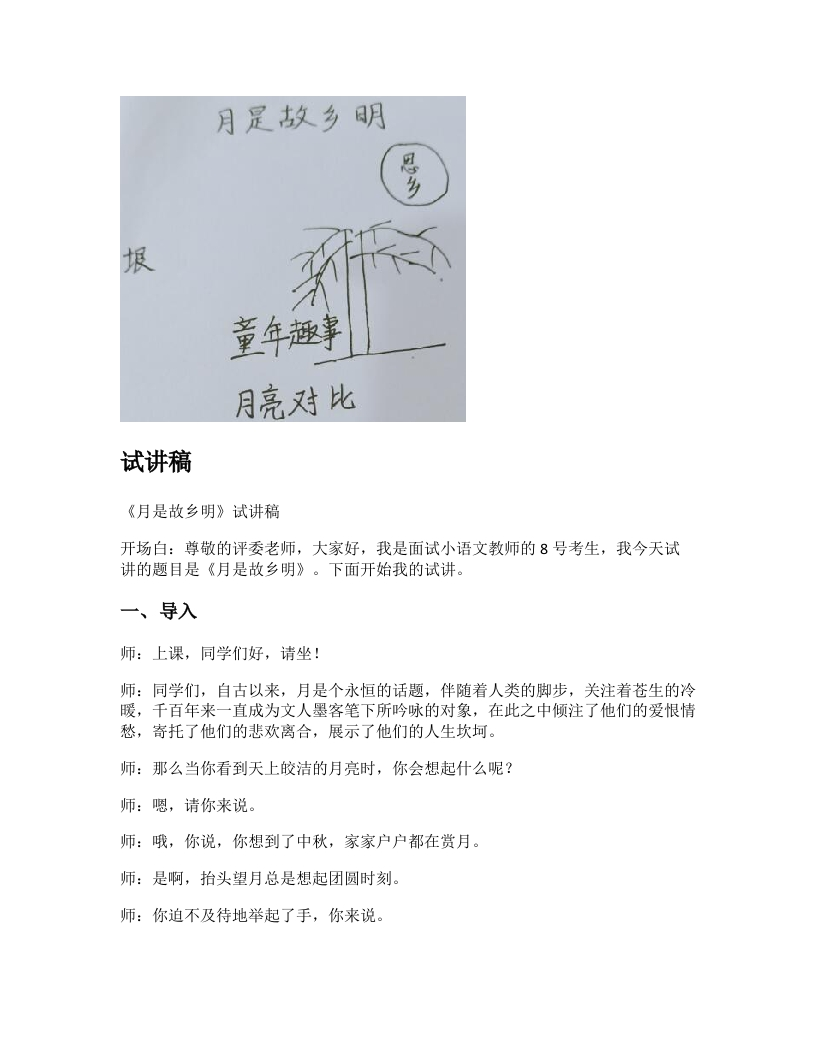 月是故乡明
思
乡
垠
童年趣事
月亮对比
试讲稿
《月是故乡明》试讲稿
开场白：尊敬的评委老师，大家好，我是面试小语文教师的 8 号考生，我今天试
讲的题目是《月是故乡明》。下面开始我的试讲。
一、导入
师：上课，同学们好，请坐！
师：同学们，自古以来，月是个永恒的话题，伴随着人类的脚步，关注着苍生的冷
暖，千百年来一直成为文人墨客笔下所吟咏的对象，在此之中倾注了他们的爱恨情
愁，寄托了他们的悲欢离合，展示了他们的人生坎坷。
师：那么当你看到天上皎洁的月亮时，你会想起什么呢？
师：嗯，请你来说。
师：哦，你说，你想到了中秋，家家户户都在赏月。
师：是啊，抬头望月总是想起团圆时刻。
师：你迫不及待地举起了手，你来说。